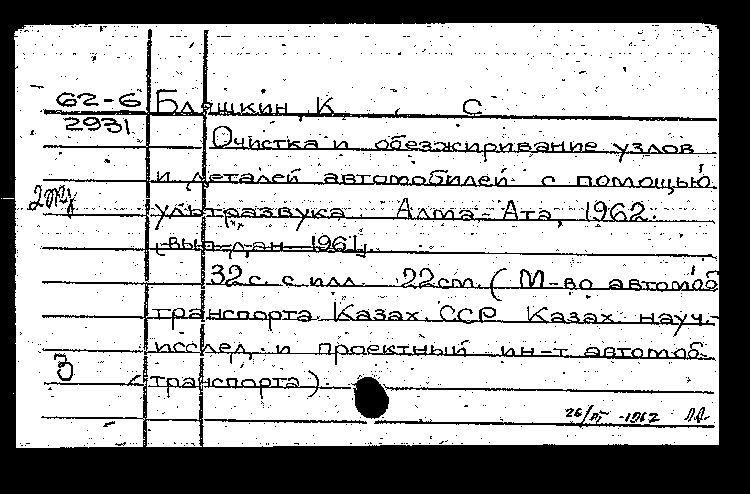 62-6
2931
Бляшкин, К. С.
Очистка и обезжиривание узлов
и деталей автомобилей с помощью
ультразвука. Алма-Ата, 1962.
[вып. дан. 1961]
32 с. с илл. 22 см. (М-во автомоб
транспорта Казах. ССР Казах. науч.-
исслед. и проектный ин-т автомоб.
транспорта).
3
-1962